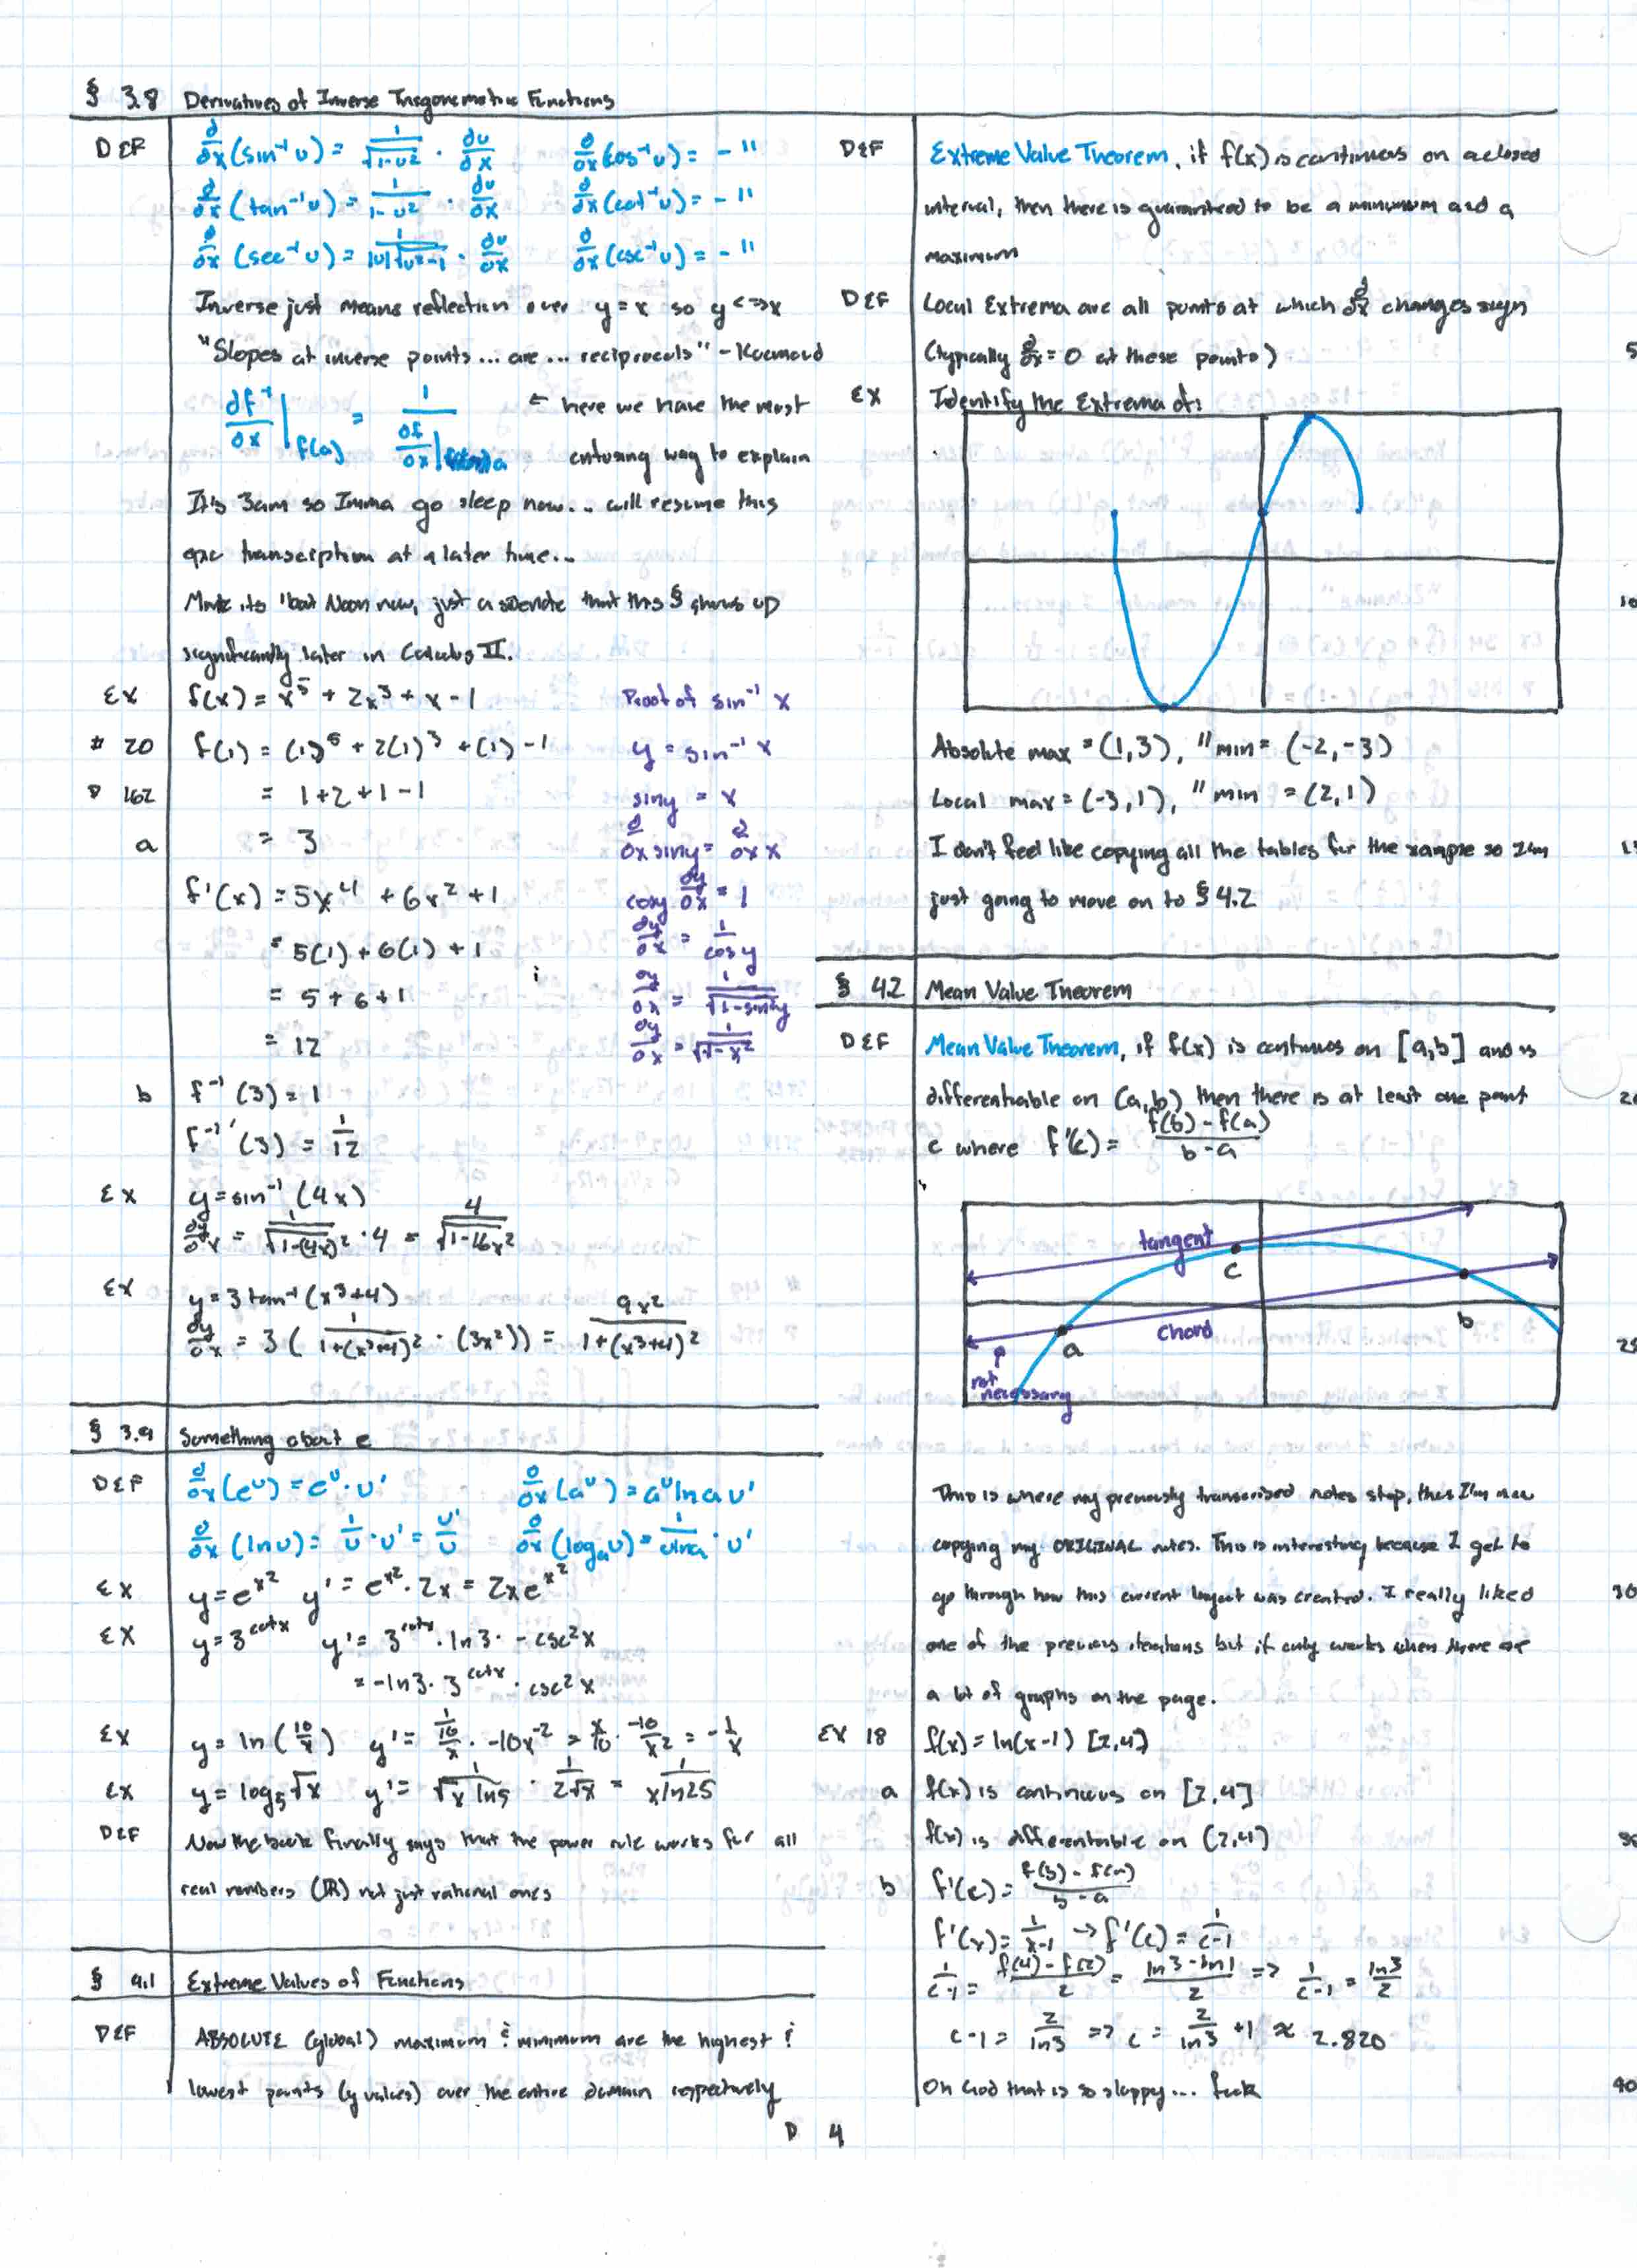 § 3.8 Derivatives of Inverse Trigonometric Functions
DEF d/dx (sin⁻¹ u) = 1/√(1-u²) · du/dx d/dx (cos⁻¹ u) = - "
d/dx (tan⁻¹ u) = 1/(1-u²) · du/dx d/dx (cot⁻¹ u) = - "
d/dx (sec⁻¹ u) = 1/(|u|√(u²-1)) · du/dx d/dx (csc⁻¹ u) = - "
Inverse just means reflection over y = x so y <=> x
"Slopes at inverse points... are... reciprocals" -
df⁻¹/dx |f(a) = 1/(df/dx |a) ← here we have the most
confusing way to explain
It's 3am so Imma go sleep now... will resume this
epic transcription at a later time...
Mark its 'bout Noon now, just a sidenote that this § shows up
significantly later in Calculus II.
EX f(x) = x⁵ + 2x³ + x - 1
# 20 f(1) = (1)⁵ + 2(1)³ + (1) - 1
P 162 = 1+2+1-1
a = 3
f'(x) = 5x⁴ + 6x² + 1
= 5(1) + 6(1) + 1
= 5 + 6 + 1
= 12
b f⁻¹(3) = 1
f⁻¹'(3) = 1/12
Proof of sin⁻¹ x
y = sin⁻¹ x
sin y = x
d/dx sin y = d/dx x
cos y dy/dx = 1
dy/dx = 1/cos y
dy/dx = 1/√(1-sin²y)
dy/dx = 1/√(1-x²)
EX y = sin⁻¹ (4x)
dy/dx = 1/√(1-(4x)²) · 4 = 4/√(1-16x²)
EX y = 3 tan⁻¹ (x³+4)
dy/dx = 3 ( 1/(1+(x³+4)²) · (3x²)) = 9x²/(1+(x³+4)²)
§ 3.9 Something about e
DEF d/dx (eᵘ) = eᵘ · u' d/dx (aᵘ) = aᵘ ln a u'
d/dx (ln u) = 1/u · u' = u'/u d/dx (logₐ u) = 1/(u ln a) · u'
EX y = e^x² y' = e^x² · 2x = 2x e^x²
EX y = 3^cotx y' = 3^cotx · ln 3 · - csc²x
= -ln 3 · 3^cotx · csc²x
EX y = ln (10/x) y' = 1/(10/x) · -10x⁻² = x/10 · -10/x² = -1/x
EX y = log₅ √x y' = 1/(√x ln 5) · 1/(2√x) = 1/(x ln 25)
DEF Now the book finally says that the power rule works for all
real numbers (ℝ) not just rational ones
§ 4.1 Extreme Values of Functions
DEF ABSOLUTE (global) maximum & minimum are the highest &
lowest points (y values) over the entire domain respectively
DEF Extreme Value Theorem, if f(x) is continuos on a closed
interval, then there is guaranteed to be a minimum and a
maximum
DEF Local Extrema are all points at which d/dx changes sign
(typically d/dx = 0 at these points)
EX Identify the Extrema of:
Absolute max = (1,3), " min = (-2,-3)
Local max = (-3,1), " min = (2,1)
I don't feel like copying all the tables for the xample so I'm
just going to move on to § 4.2
§ 4.2 Mean Value Theorem
DEF Mean Value Theorem, if f(x) is continuos on [a,b] and is
differentiable on (a,b) then there is at least one point
c where f'(c) = (f(b) - f(a))/(b-a)
tangent
c
chord
a
b
not
necessary
This is where my previously transcribed notes stop, thus I'm now
copying my ORIGINAL notes. This is interesting because I get to
go through how this current layout was created. I really liked
one of the previous iterations but it only works when there are
a lot of graphs on the page.
EX 18 f(x) = ln(x-1) [2,4]
a f(x) is continuous on [2,4]
f(x) is differentiable on (2,4)
b f'(c) = (f(b) - f(a))/(b-a)
f'(x) = 1/(x-1) → f'(c) = 1/(c-1)
1/(c-1) = (f(4) - f(2))/2 = (ln 3 - ln 1)/2 => 1/(c-1) = ln 3/2
c-1 = 2/ln 3 => c = 2/ln 3 + 1 ≈ 2.820
Oh God that is so sloppy... fuck
5
10
20
25
30
40
P 4